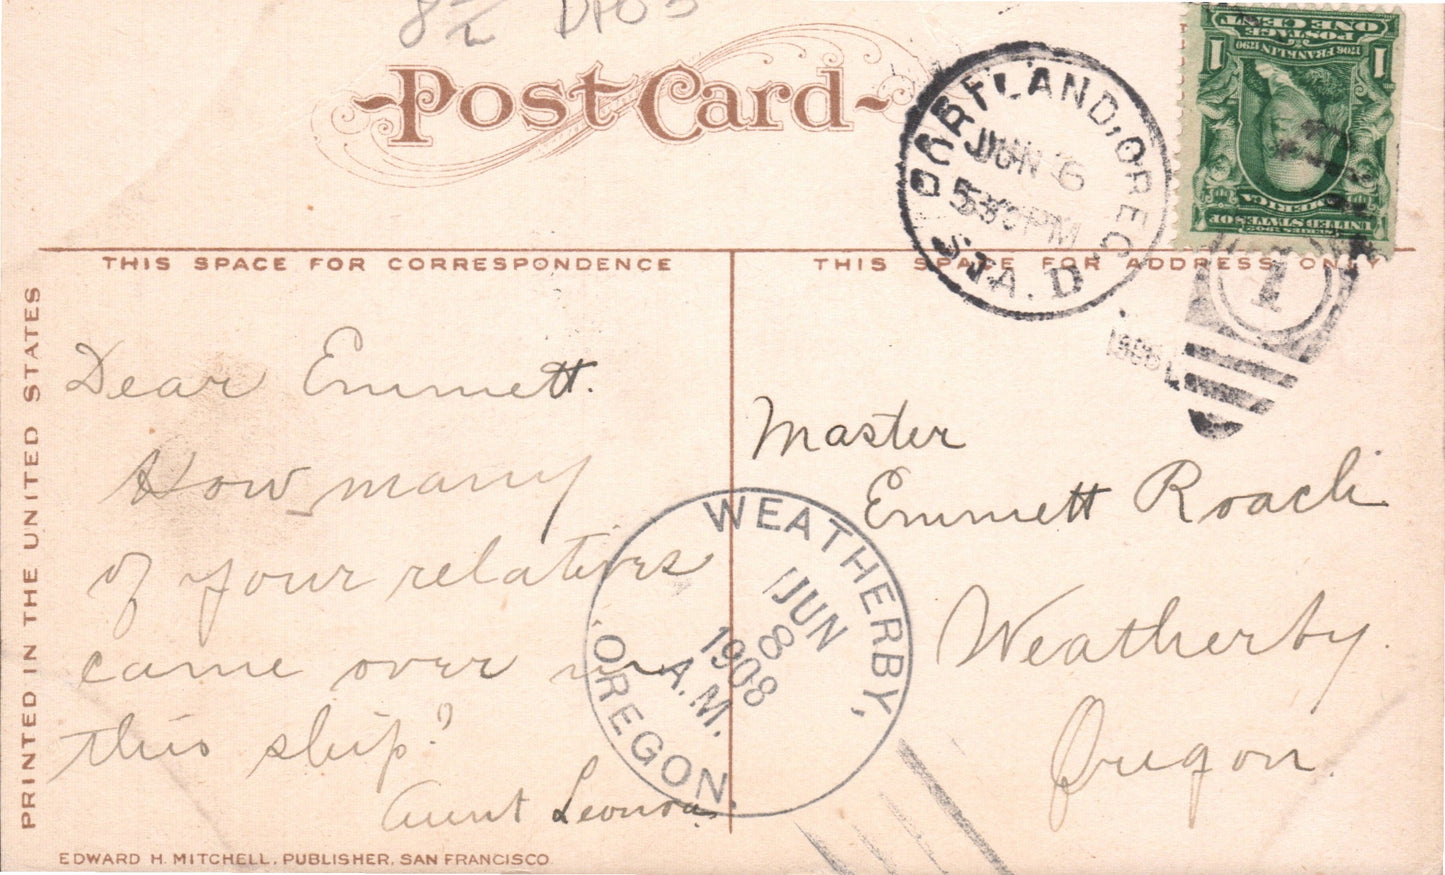 8½ DPO 5
Post Card
THIS SPACE FOR CORRESPONDENCE
THIS SPACE FOR ADDRESS ONLY
PRINTED IN THE UNITED STATES
Dear Emmett.
How many
of your relatives
came over in
this ship?
Aunt Leonora
EDWARD H. MITCHELL, PUBLISHER, SAN FRANCISCO
Master
Emmett Roach
Weatherby.
Oregon.
PORTLAND, OREG.
JUN 6
5 30 PM
STA. D
1
WEATHERBY,
JUN
8
1908
A.M.
OREGON.
SERIES 1902
UNITED STATES OF
AMERICA
1706 FRANKLIN 1790
POSTAGE
1 ONE CENT 1